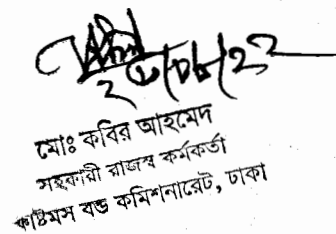 ২৩/০৮/২২
মোঃ কবির আহমেদ
সহকারী রাজস্ব কর্মকর্তা
কাষ্টমস বন্ড কমিশনারেট, ঢাকা